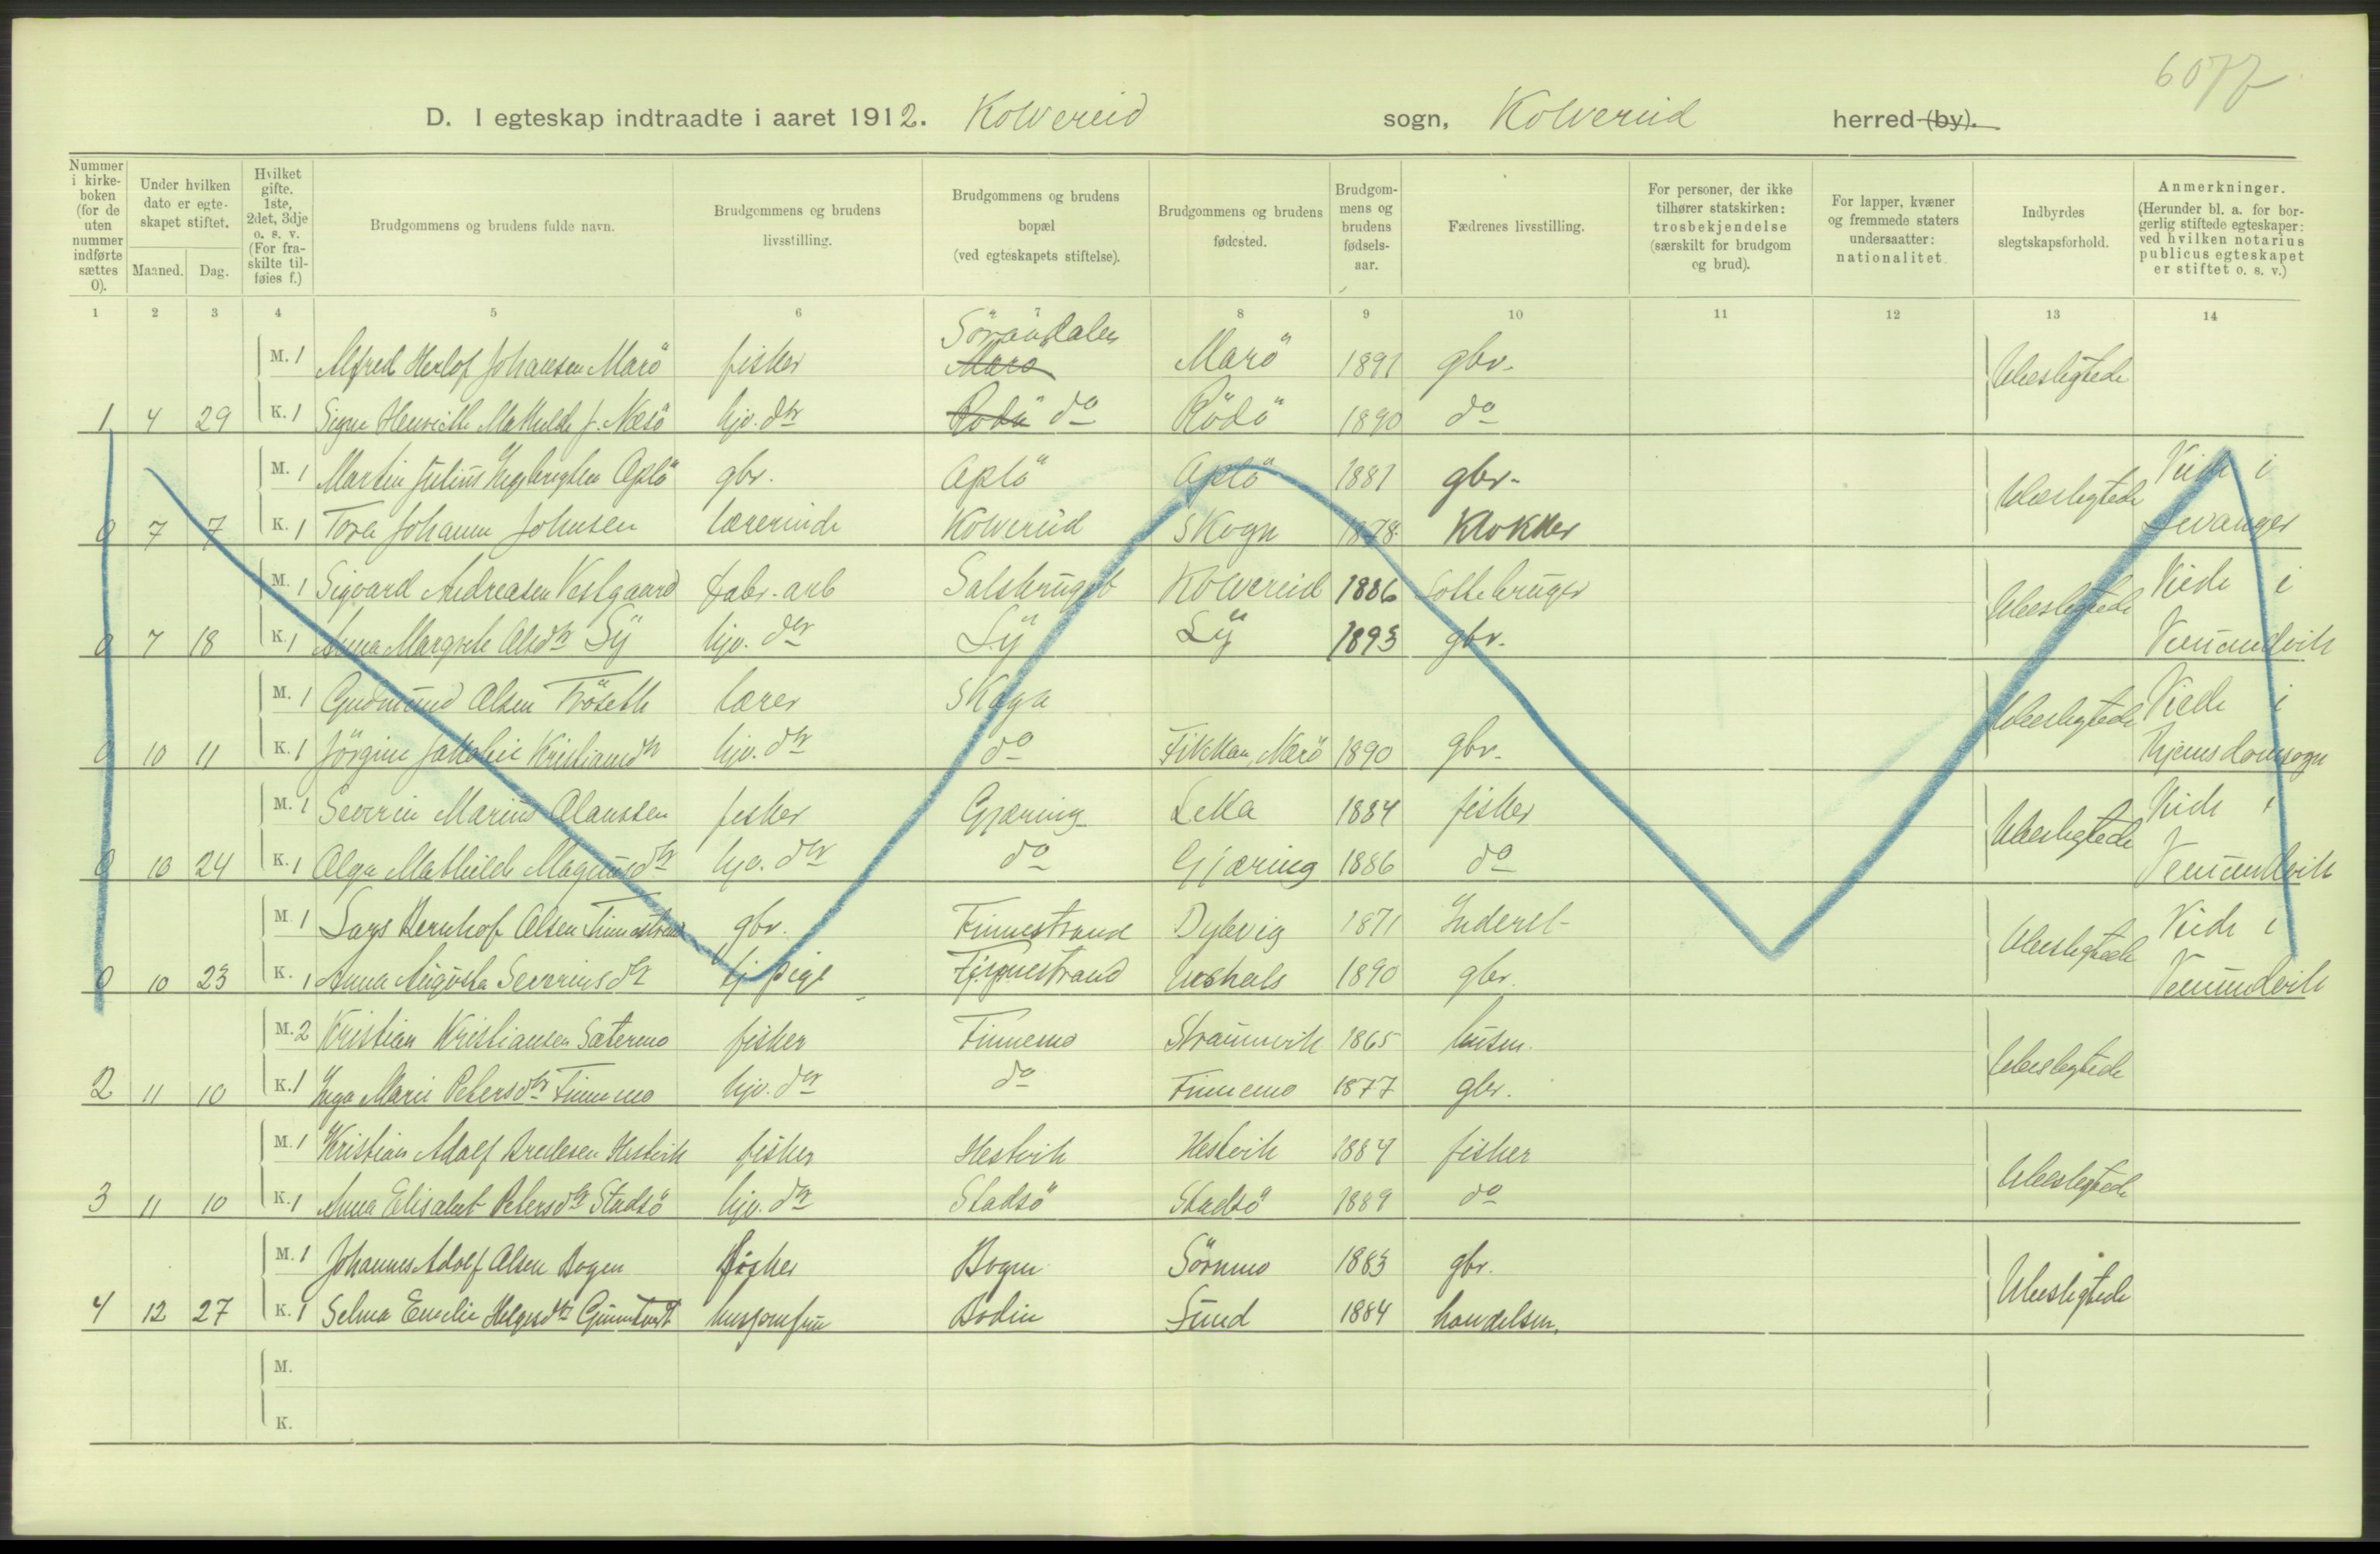 6077
D. I egteskap indtraadte i aaret 1912. Kolvereid sogn, Kolvereid herred (by).
Nummer i kirkeboken (for de uten nummer indførte sættes 0).
Under hvilken dato er egteskapet stiftet.
Maaned. Dag.
Hvilket gifte. 1ste, 2det, 3dje o. s. v. (For fraskilte tilføies f.)
Brudgommens og brudens fulde navn.
Brudgommens og brudens livsstilling.
Brudgommens og brudens bopæl (ved egteskapets stiftelse).
Brudgommens og brudens fødested.
Brudgommens og brudens fødselsaar.
Fædrenes livsstilling.
For personer, der ikke tilhører statskirken: trosbekjendelse (særskilt for brudgom og brud).
For lapper, kvæner og fremmede staters undersaatter: nationalitet.
Indbyrdes slegtskapsforhold.
Anmerkninger. (Herunder bl. a. for borgerlig stiftede egteskaper: ved hvilken notarius publicus egteskapet er stiftet o. s. v.)
1 2 3 4 5 6 7 8 9 10 11 12 13 14
M. 1 Alfred Herlof Johansen Marö fisker Marö Marö 1891 gbr. Ubeslegtede
1 4 29 K. 1 Signe Henriette Mathilde J. Næsö hjv. dtr do Rödö 1890 do
M. 1 Martin Julius Ingebrigtsen Aplö gbr. Aplö Aplö 1881 gbr. Ubeslegtede Viede i
0 7 7 K. 1 Tora Johanne Johnsen lærerinde Kolvereid Skogn 1878 Klokker Levanger
M. 1 Sigvard Andreasen Vestgaard fabr. arb Salsbruget Kolvereid 1886 Viede i
0 7 18 K. 1 Anna Margrete Olsdtr Lÿ hjv. dtr Lÿ Lÿ 1893 gbr. Ubeslegtede Vemundvik
M. 1 Gudmund Olsen Fröseth lærer Skogn Viede i
0 10 11 K. 1 Jörgine Kristiansdtr hjv. dtr do Fikkan, Nærö 1890 gbr. Ubeslegtede
M. 1 Severin Marius Olaussen fisker Gjæring Leka 1884 fisker Viede i
0 10 24 K. 1 Olga Mathilde Magnusdtr hjv. dtr do Gjæring 1886 do Ubeslegtede Vemundvik
M. 1 Lars Bernhof Olsen Finnestrand gbr. Finnestrand Dybvig 1871 Inderst Viede i
0 10 23 K. 1 Anna Augusta Severinsdtr tj. pige Finnestrand 1890 gbr. Ubeslegtede Vemundvik
M. 2 Kristian Kristiansen Sætermo fisker Finnemo Straumvik 1865 husm. Ubeslegtede
2 11 10 K. 1 Inga Marie Petersdtr Finnemo hjv. dtr do Finnemo 1877 gbr.
M. 1 Kristian Adolf Bredesen Hestvik fisker Hestvik Hestvik 1884 fisker Ubeslegtede
3 11 10 K. 1 Anna Elisabet Petersdtr Stadsö hjv. dtr Stadsö Stadsö 1889 do
M. 1 Johannes Adolf Olsen Bogen fisker Bogen Sörmo 1883 gbr. Ubeslegtede
4 12 27 K. 1 Selma Emelie Helgesdtr husjomfru Bodin Sund 1884 handelsm.
M.
K.